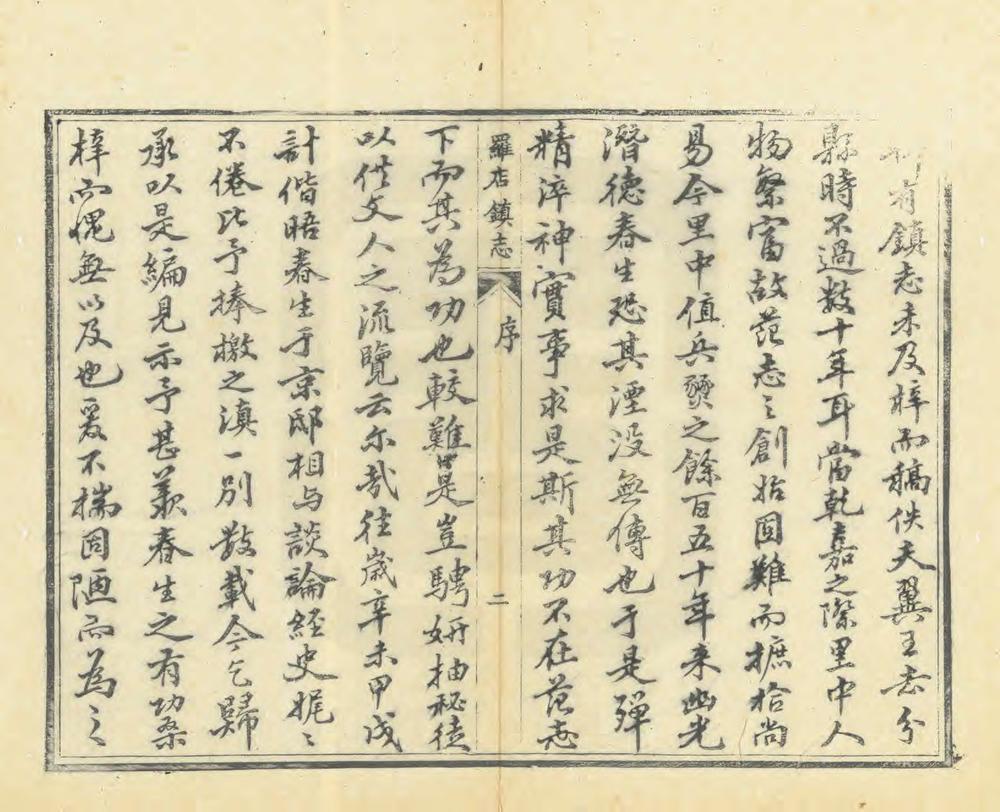 有鎮志未及梓而稿佚夫翼王志分
縣時不過数十年耳當乾嘉之際里中人
物繁富故范志之創始固難而摭拾尚
易今里中值兵燹之餘百五十年来幽光
潛德春生恐其湮没無傳也于是殫
精淬神實事求是斯其功不在范志
羅店鎮志
序
二
下而其為功也較難是豈騁妍抽秘徒
以供文人之流覽云尔哉往歳辛未甲戌
計偕晤春生于京邸相与談論経史娓〻
不倦比予捧檄之滇一别数載今乞歸
承以是編見示予甚羨春生之有功桑
梓而愧無以及也爰不揣固陋而為之